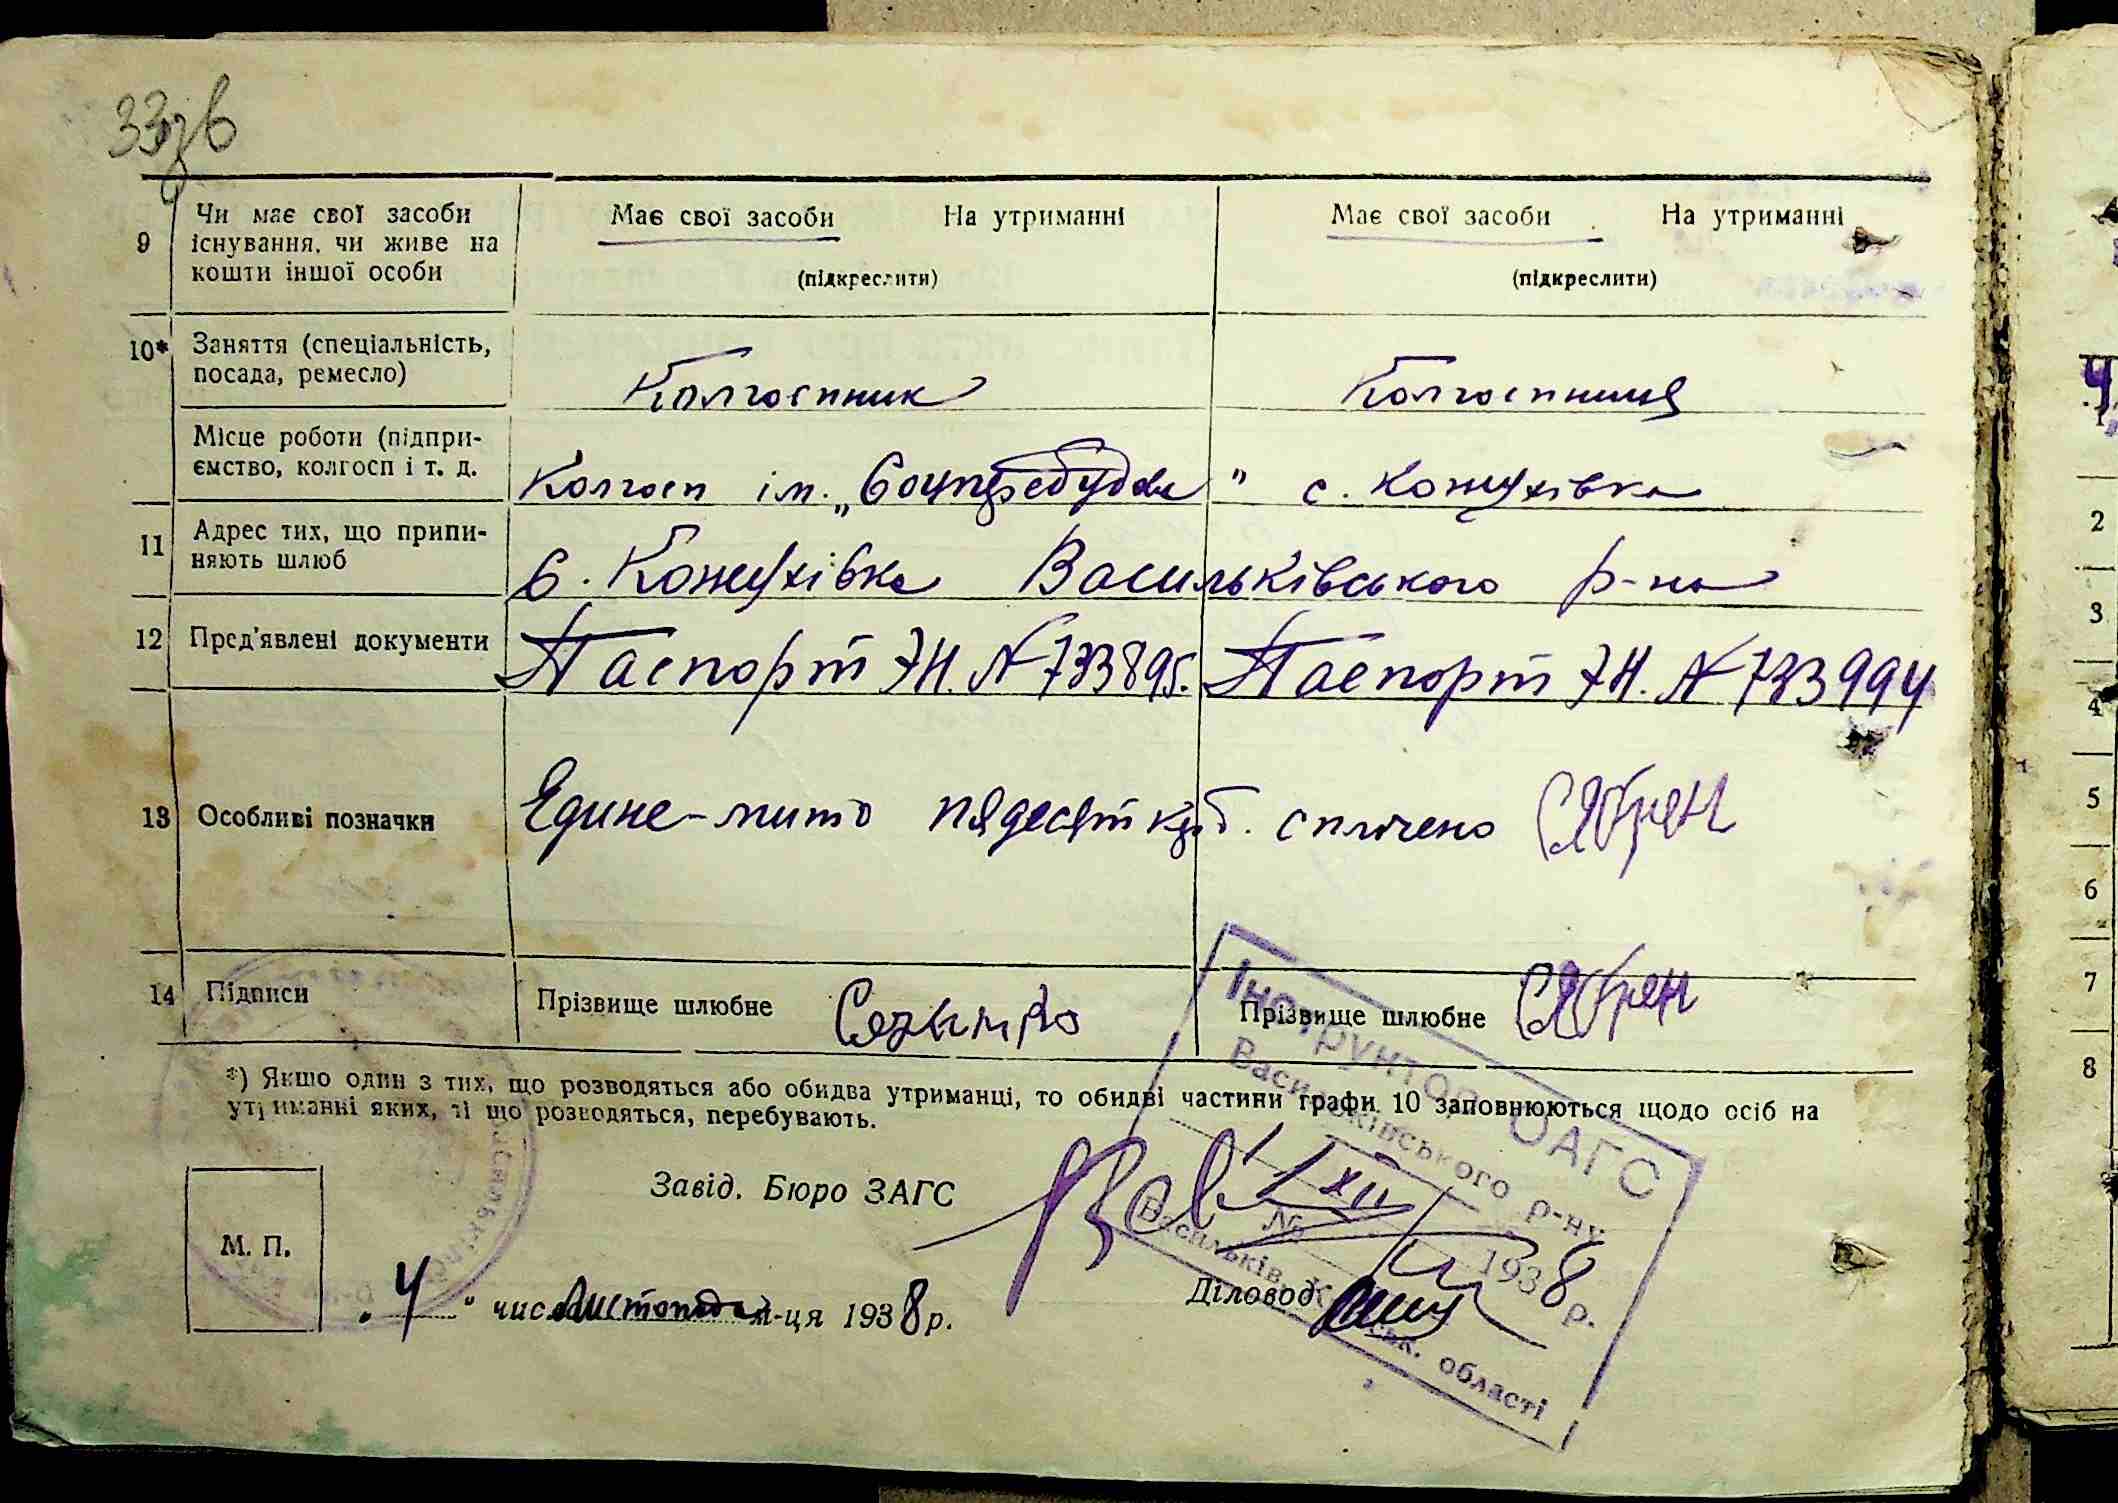 33зв
9 Чи має свої засоби існування, чи живе на кошти іншої особи
Має свої засоби На утриманні
(підкреслити)
Має свої засоби На утриманні
(підкреслити)
10* Заняття (спеціальність, посада, ремесло)
Колгоспник
Колгоспниця
Місце роботи (підпри-
ємство, колгосп і т. д.
Колгосп ім. „ " с. Кожухівка
11 Адрес тих, що припи-
няють шлюб
С. Кожухівка Васильківського р-на
12 Пред'явлені документи
Паспорт ЗН. № 733895.
Паспорт ЗН. № 733994
13 Особливі позначки
Едине-мито пядесят крб. сплачено
14 Підписи
Прізвище шлюбне
Прізвище шлюбне
*) Якшо один з тих, що розводяться або обидва утриманці, то обидві частини графи 10 заповнюються щодо осіб на
утриманні яких, ті що розводяться, перебувають.
Інструктор ОАГС
Васильківського р-ну
1 XII
№ 1938 р.
Васильків, Київськ. області
Завід. Бюро ЗАГС
М. П.
„4" числа листопада м-ця 1938 р.
Діловод
2
3
4
5
6
7
8